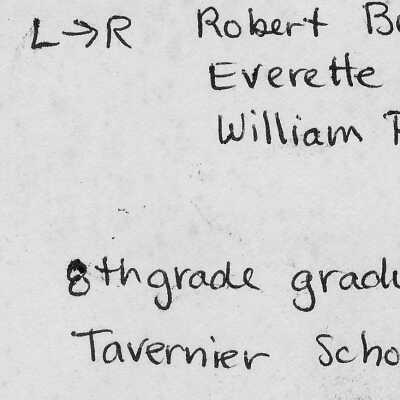 L→R Robert B
Everette
William
8th grade gradu
Tavernier Scho